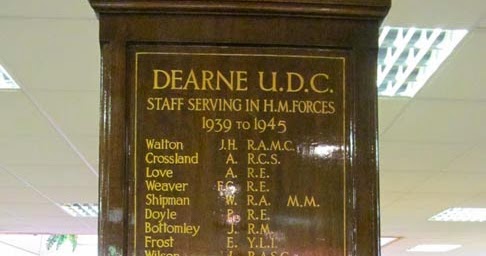 DEARNE U.D.C.
STAFF SERVING IN H.M.FORCES
1939 TO 1945
Walton J.H. R.A.M.C.
Crossland A. R.C.S.
Love A. R.E.
Weaver F.G. R.E.
Shipman W. R.A. M.M.
Doyle P. R.E.
Bottomley J. R.M.
Frost E. Y.L.I.
Wilson J. R.A.S.C.